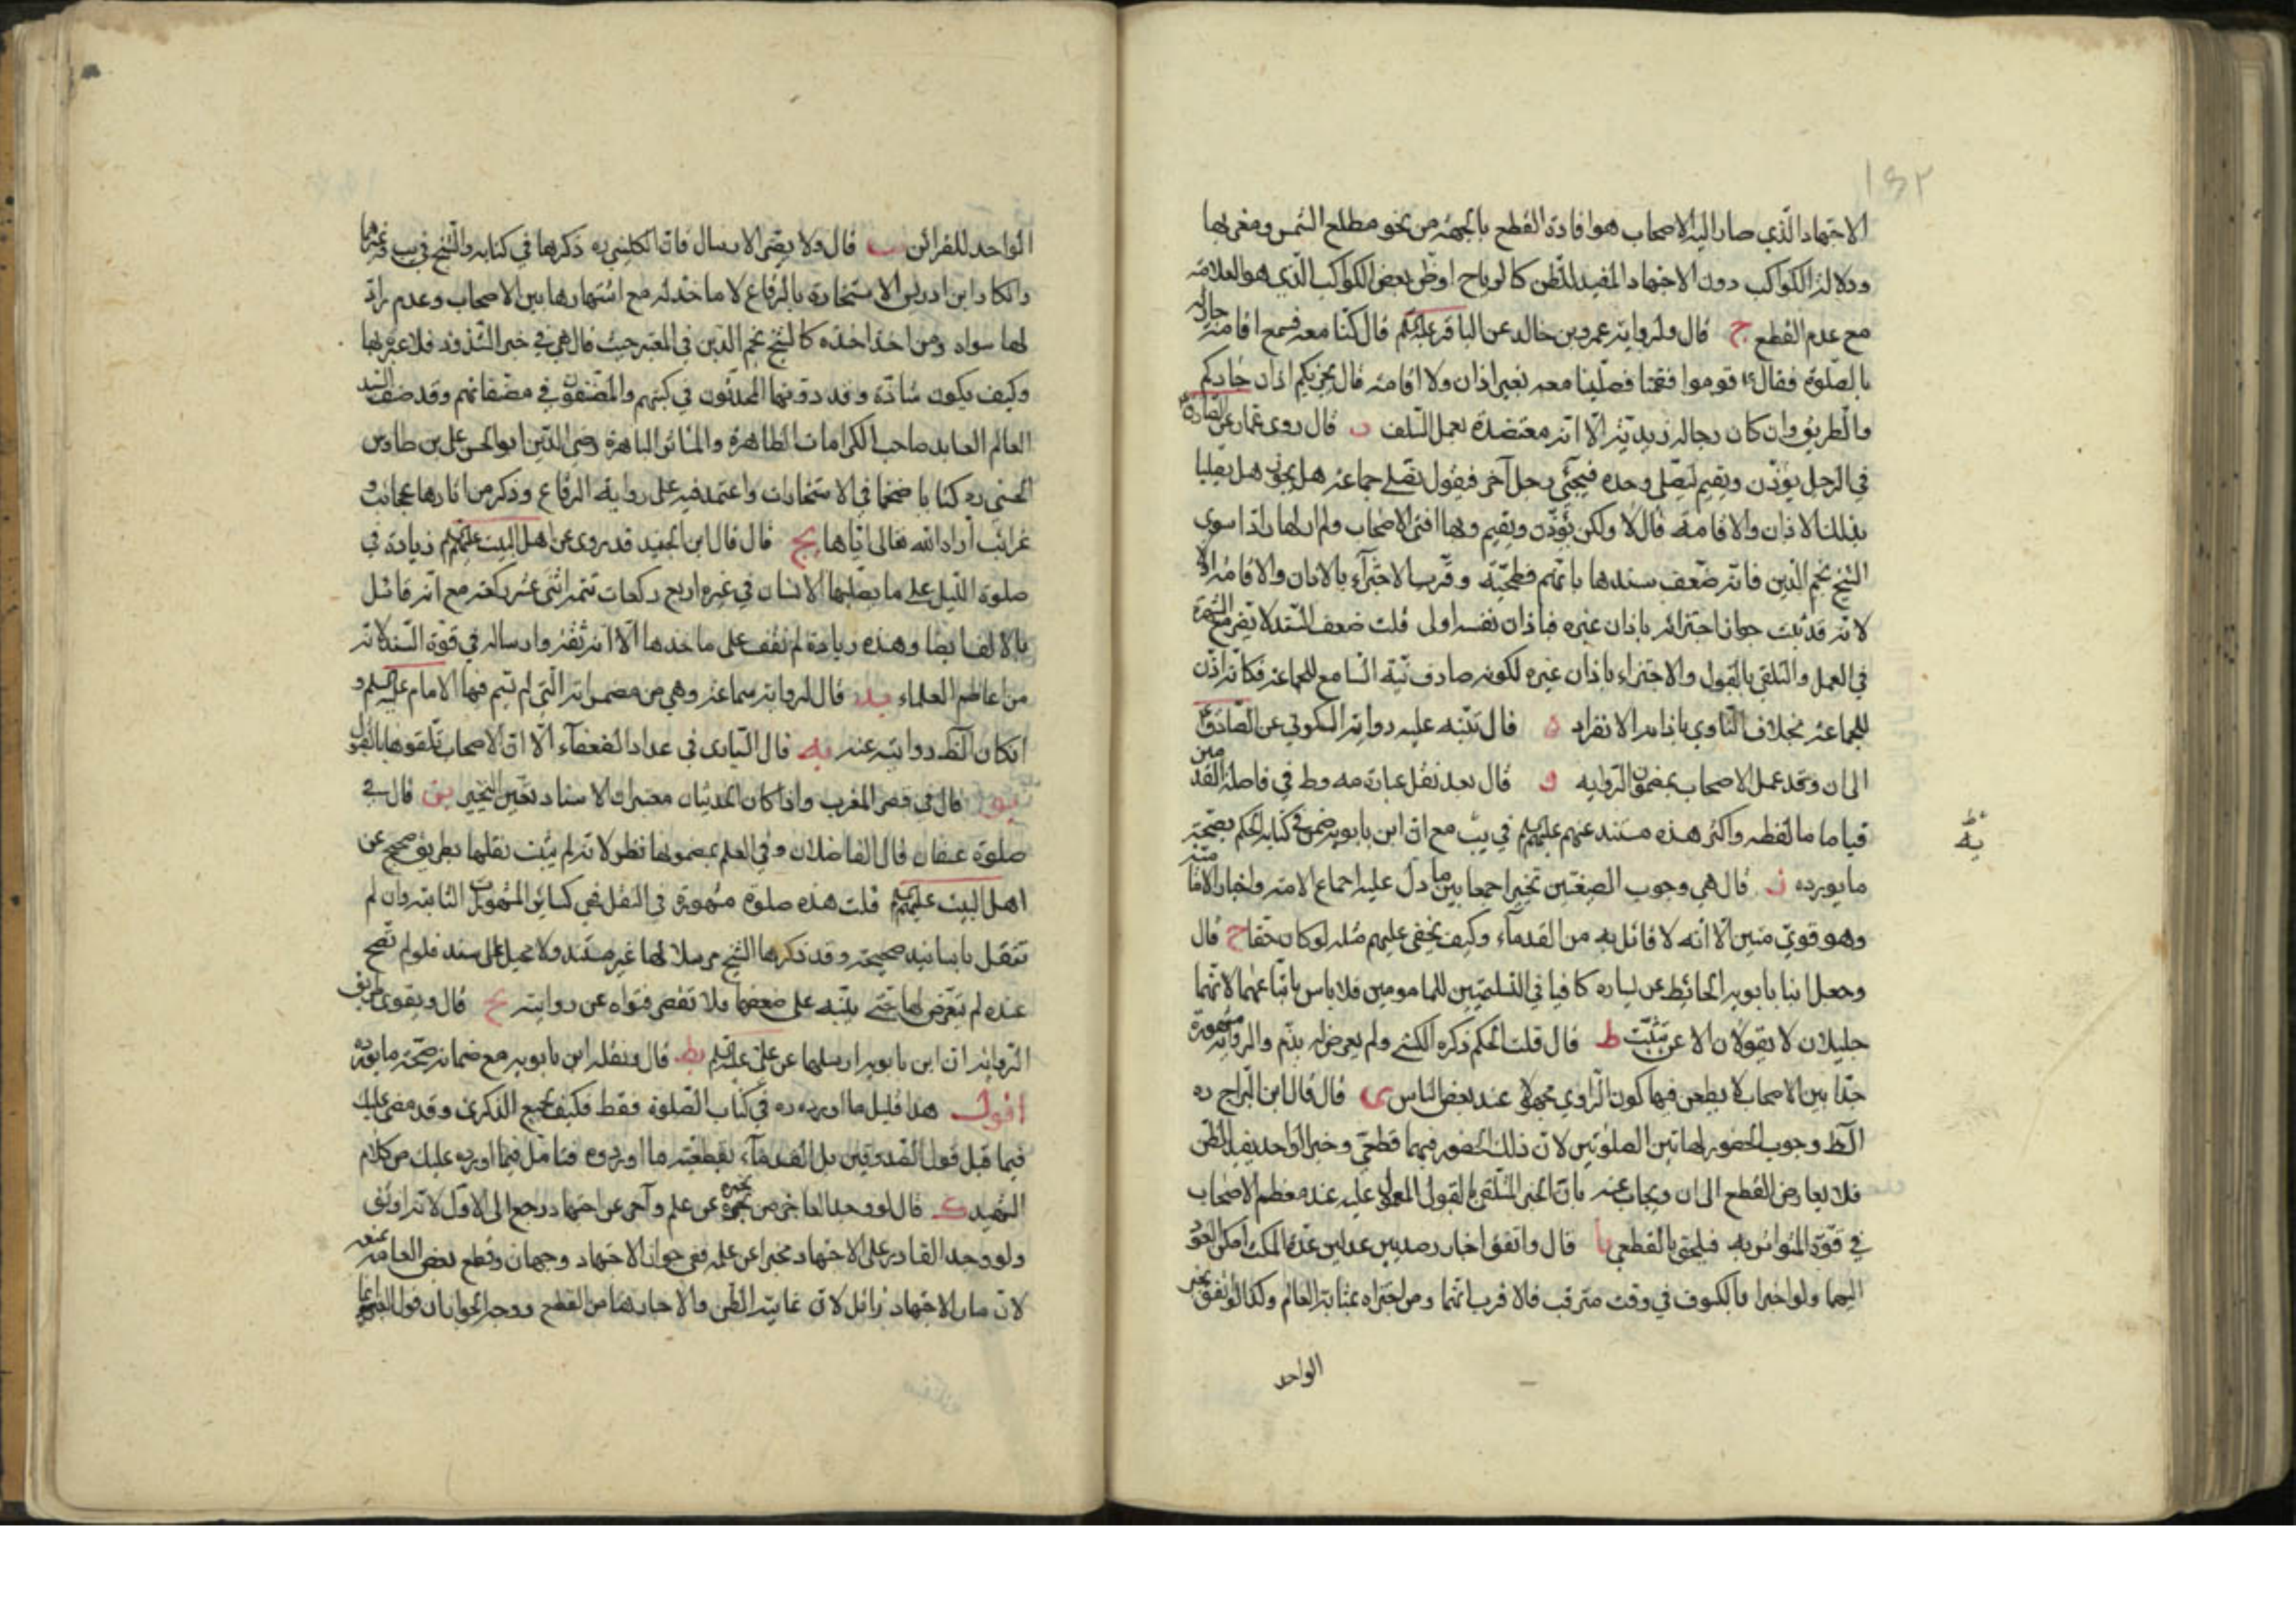 ١٥٢
الاجتهاد الذي صار اليه الاصحاب هو افادة القطع بالجهة من نحو مطلع الشمس ومغربها
ودلالة الكواكب دون الاجتهاد المفيد للظن كالرياح او ظن بعض الكواكب الذي هو العلامة
مع عدم القطع ج قال ولرواية عمرو بن خالد عن الباقر عليه السلم قال كنا معه فسمع اقامة جار له
بالصلوة فقال قوموا فقمنا فصلينا معه بغير اذان ولا اقامة قال يجزيكم اذان جاركم
والطريق وان كان رجاله زيدية الا انه معتضدة بعمل السلف د قال روى عمار عن الصادق
في الرجل يؤذن ويقيم ليصلي وحده فيجئ رجل آخر فيقول نصلي جماعة هل يجوز هل يصليا
بذلك الاذان والاقامة قال لا ولكن يؤذن ويقيم وبها افتى الاصحاب ولم ار لها رادا سوى
الشيخ نجم الدين فانه ضعف سندها بانهم فطحية وقرب الاجتزاء بالاذان والاقامة اولا
لانه قد ثبت جواز اجتزائه باذان غيره فباذان نفسه اولى قلت ضعف السند لا يضر مع الشهرة
في العمل والتلقي بالقبول والاجتزاء باذان غيره لكونه صادف نية السامع للجماعة فكانه اذن
للجماعة بخلاف الناوي باذانه الانفراد ه قال تنبه عليه رواية السكوني عن الصادق
الى ان وقد عمل الاصحاب بمضمون الرواية و قال بعد نقل عبارة مه وط في فاصلة القدمين
قياما ما لفظه واكثر هذه مستند عنهم عليهم السلم في يب مع ان ابن بابويه ضمن في كتابه الحكم بصحة
يه
ما يورده ز قال هي وجوب الصيغتين تخييرا جمعا بين ما دل عليه اجماع الامة واخبار الامامية
وهو قوي متين الا انه لا قائل به من القدماء وكيف يخفى عليهم مثله لو كان حقا ح قال
وجعل ابنا بابويه الحائط عن يساره كافيا في التسليمتين للمامومين فلا باس باتباعهما لانهما
جليلان لا يقولان الا عن تثبت ط قال قلت الحكم ذكره الكشي ولم يعرض له بذم والرواية مشهورة
جدا بين الاصحاب لا يطعن فيها كون الراوي مجهولا عند بعض الناس ى قال قال ابن البراج ره
الظ وجوب الحضور لهاتين الصلوتين لان ذلك الحضور فيهما قطعي وخبر الواحد يفيد الظن
فلا يعارض القطع الى ان ويجاب عنه بان الخبر المتلقى بالقبول المعمول عليه عند معظم الاصحاب
في قوة المتواتر به فيلحق بالقطعي يا قال واتفق اخبار رصديين عدلين عند المكث امكن العود
اليهما ولو اخبرا بالكسوف في وقت مترقب فالاقرب انهما ومن اخبراه بمثابة العالم وكذا لو اتفق بخبر
الواحد
الواحد للقرائن يب قال ولا يضر الارسال فان الكليني ره ذكرها في كتابه والشيخ في يب وغيرهما
وانكار ابن ادريس الاستخارة بالرقاع لا ماخذ له مع اشتهارها بين الاصحاب وعدم راد
لها سواه ومن اخذ اخذه كالشيخ نجم الدين في المعتبر حيث قال هي في حيز الشذوذ فلا عبرة بها
وكيف يكون شاذة وقد دونها المحدثون في كتبهم والمصنفون في مصنفاتهم وقد صنف السيد
العالم العابد صاحب الكرامات الظاهرة والماثر الباهرة رضي الدين ابو الحسن علي بن طاوس
الحسني ره كتابا ضخما في الاستخارات واعتمد فيه على رواية الرقاع وذكر من اثارها عجائب و
غرائب اراه الله تعالى اياها يج قال قال ابن الجنيد قد يروى عن اهل البيت عليهم السلم زيادة في
صلوة الليل على ما يصليها الانسان في غيره اربع ركعات تتمة اثنتى عشر ركعة مع انه قائل
بالالف ايضا وهذه زيادة لم نقف على ماخذها الا انه ثقة وارساله في قوة المسند لانه
من اعاظم العلماء يد قال لرواية سماعة وهي من مضمراته التي لم تيم فيها الامام عليه السلم و
ان كان الظ روايته عنه يه قال الثياري في عداد الضعفاء الا ان الاصحاب تلقوها بالقبول
يو قال في قصر المغرب واذا كان الحديثان معتبرا الاسناد تعين التخيير يز قال في
صلوة عسفان قال الفاضلان وفي العلم بمضمونها نظر لانه لم يثبت نقلها بطريق صحيح عن
اهل البيت عليهم السلم قلت هذه صلوة مشهورة في النقل فهي كسائر المشهورات الثابتة وان لم
تنقل باسانيد صحيحة وقد ذكرها الشيخ مرسلا لها غير مسند ولا محيل على سند فلو لم تصح
عنده لم يتعرض لها حتى ينبه على ضعفها فلا تقصر فتواه عن روايته يح قال ويقوى طريق
الرواية ان ابن بابويه ارسلها عن علي عليه السلم يط قال ونقله ابن بابويه مع ضمانه صحة ما يورده
اقول هذا قليل ما اورده ره في كتاب الصلوة فقط فكيف بجميع الذكرى وقد مضى عليك
فيما قبل قول الصدوقين بل القدماء بقطعية ما اوردوه فتامل فيما اورده عليك من كلام
الشهيد ك قال لو وجد العاجز من يخبره عن علم وآخر عن اجتهاد رجع الى الاول لانه اوثق
ولو وجد القادر على الاجتهاد مخبرا عن علم ففي جواز الاجتهاد وجهان وقطع بعض العامة بمنعه
لان مدار الاجتهاد زائل لان غايته الظن والاخبار هنا من القطع ووجه الجواز ان قول